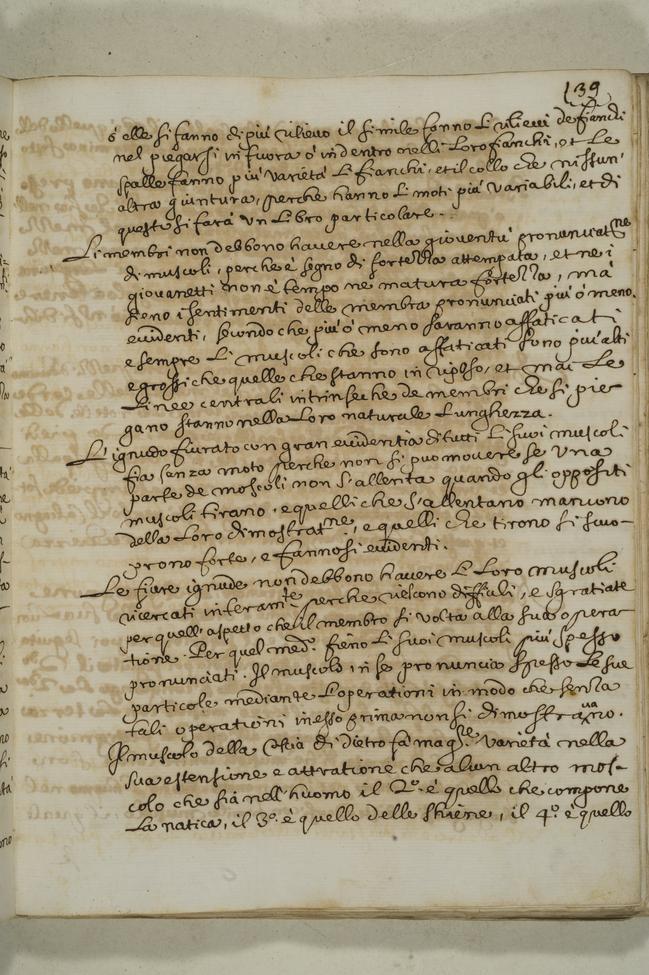 139
ó elle si fanno di più rilievo il simile fanno li rilievi de fianchi
nel piegarsi in fuora ó in dentro nelli loro fianchi, et le
spalle fanno più varietà li fianchi, et il collo che nissun'
altra giuntura, perche hanno li moti più variabili, et di
questo si farà un libro particolare.
Li membri non debbono havere nella gioventù pronunciat.ne
di muscoli, perche è segno di fortezza attempata, et ne i
giovanetti non è tempo ne matura fortezza, mà
sieno i sentimenti delle membra pronunciati più ó meno.
evidenti, secondo che più ó meno saranno affaticati
e sempre li muscoli che sono affaticati sono più alti
e grossi che quelle che stanno in riposo, et mai le
linee centrali intrinseche de membri che si pie-
gano stanno nella loro naturale lunghezza.
L'ignudo figurato con gran evidentia di tutti li suoi muscoli
fia senza moto perche non si può movere se una
parte de moscoli non s'allenta quando gli oppositi
muscoli tirano, e quelli che s'allentano mancono
della loro dimostrat.ne, e quelli che tirono si scuo-
prono forte, e fannosi evidenti.
Le figure ignude non debbono havere li loro muscoli
ricercati interam.te perche riescono difficili, e sgratiate
per quell'aspetto che il membro si volta alla sua opera-
tione. Per quel med.º fieno li suoi muscoli più spesso
pronunciati. Il muscolo in se pronuncia spesso le sue
particole mediante l'operationi in modo che senza
tali operationi in esso prima non si dimostravano.
Il muscolo della coscia di dietro fà magg.re varietà nella
sua estensione e attratione che alcun altro mos-
colo che sia nell'huomo il 2.º è quello che compone
la natica, il 3.º è quello delle schiene, il 4.º è quello